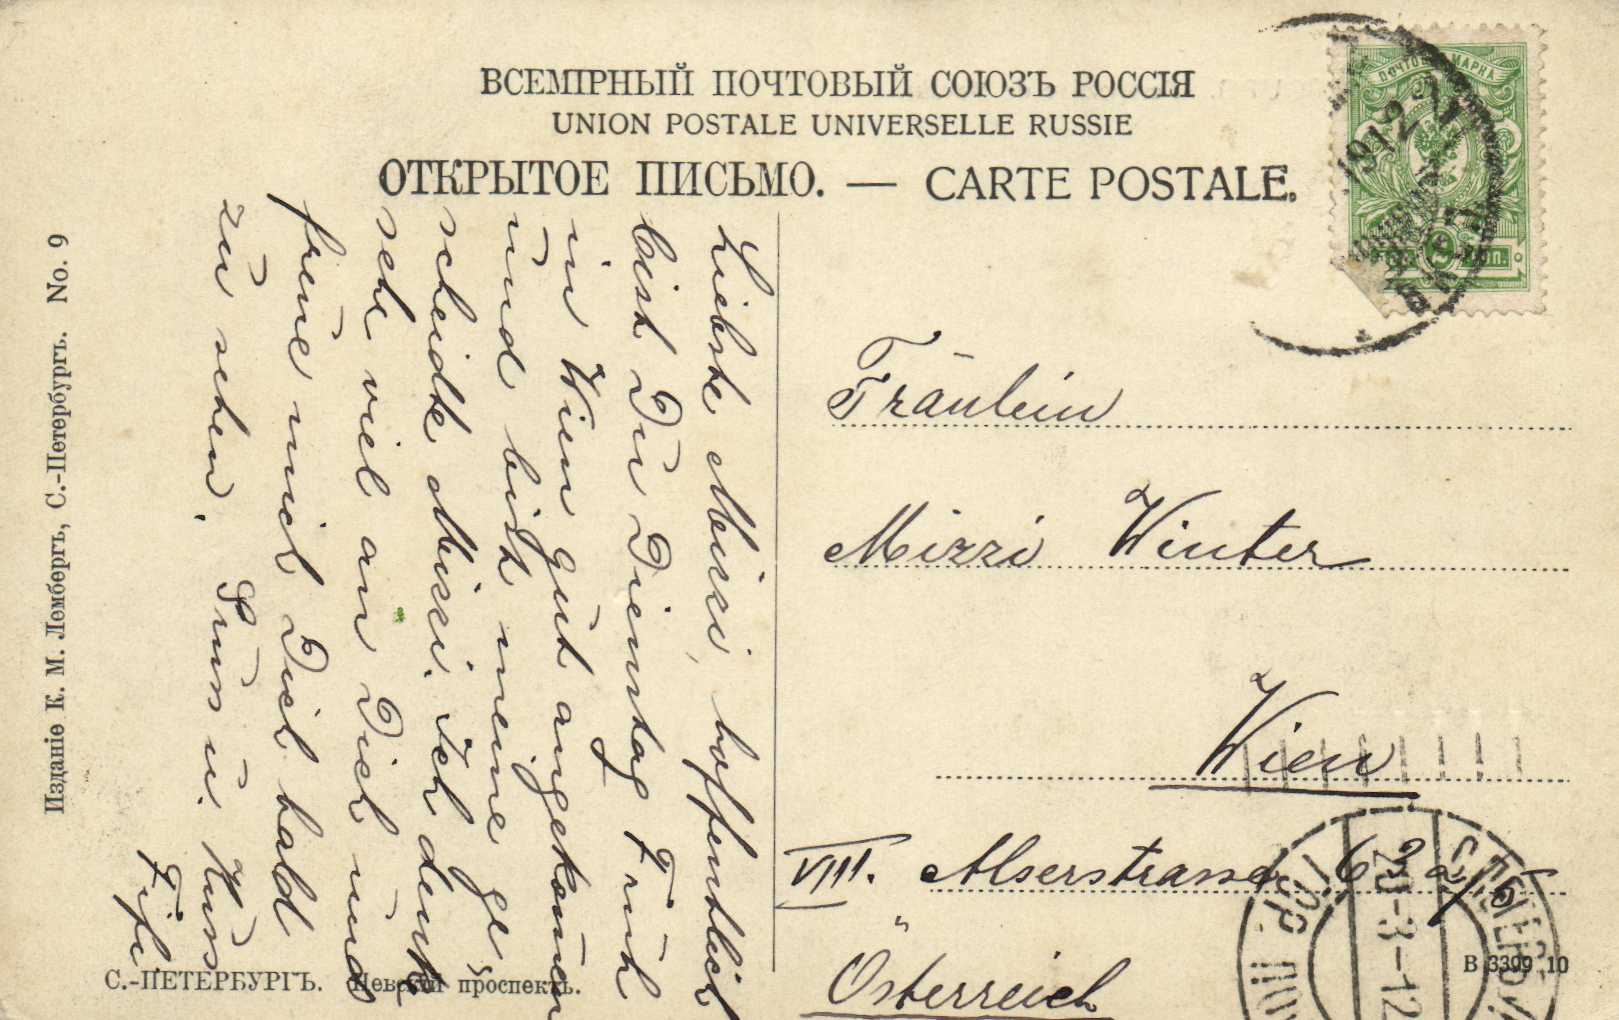 ВСЕМІРНЫЙ ПОЧТОВЫЙ СОЮЗЪ РОССІЯ
UNION POSTALE UNIVERSELLE RUSSIE
ОТКРЫТОЕ ПИСЬМО. — CARTE POSTALE.
ПОЧТОВАЯ МАРКА
1912
2
КОП.
Liebste Mizzi, hoffentlich
bist Du Dienstag Früh
in Wien gut angekomen
und bist meine ge
scheidte Mizzi. Ich denke
sehr viel an Dich und
freue mich Dich bald
zu sehen. Gruss u. Kuss
Fifi.
Fräulein
Mizzi Winter
Wien
VIII. Alserstrasse 63a/5
Österreich
С.-ПЕТЕРБУРГЪ
20-3-12
С.-ПЕТЕРБУРГЪ. Невскій проспектъ.
В 3399 10
Изданіе К. М. Лембергъ, С.-Петербургъ. No. 9